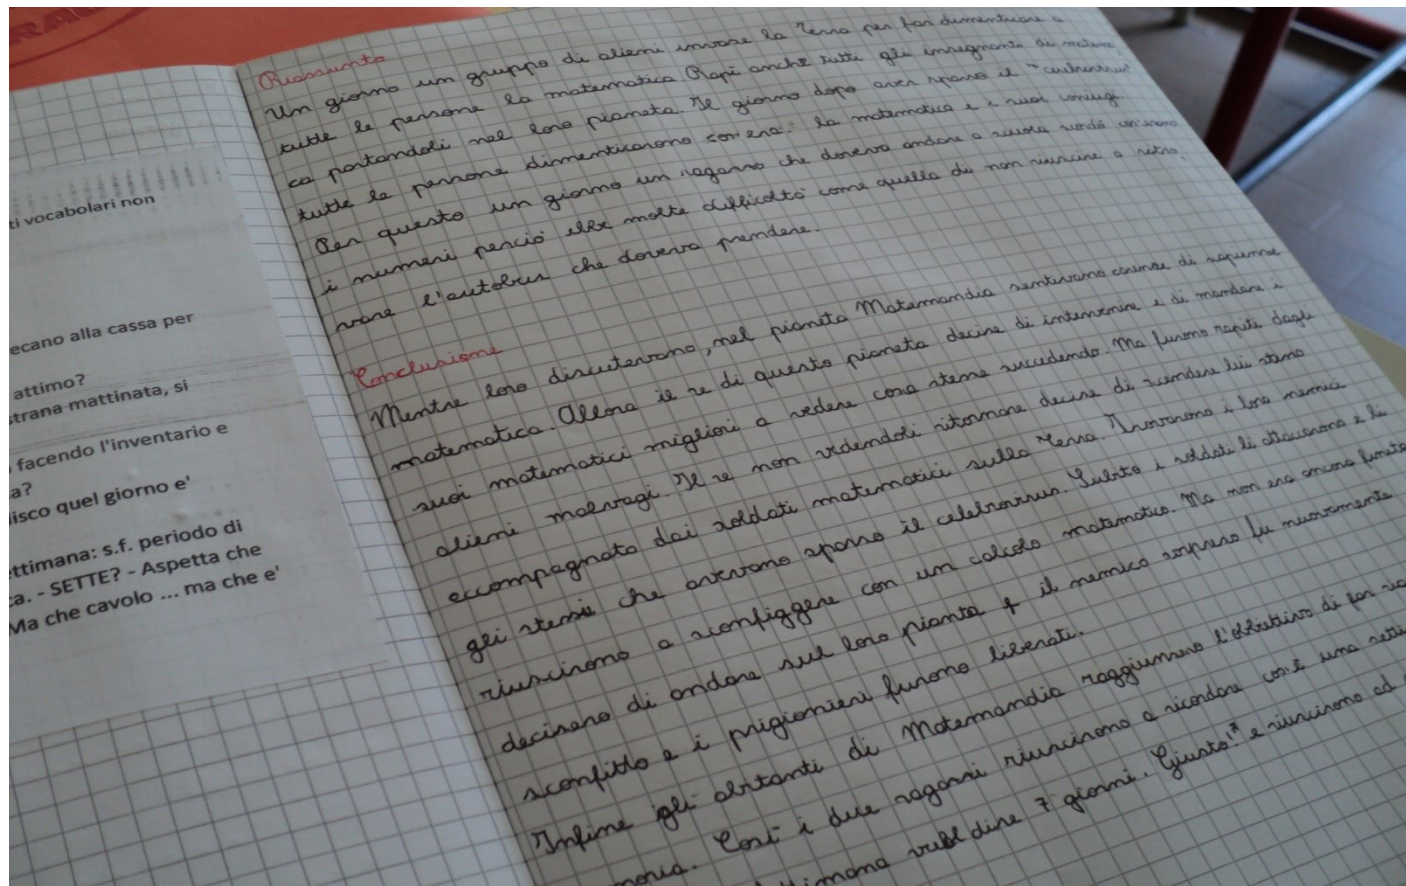 ti vocabolari non
ecano alla cassa per
attimo?
strana mattinata, si
facendo l'inventario e
a?
isco quel giorno e'
ttimana: s.f. periodo di
ca. - SETTE? - Aspetta che
Ma che cavolo ... ma che e'
Riassunto
Un giorno un gruppo di alieni invase la Terra per far dimenticare a
tutte le persone la matematica Rapì anche tutti gli insegnanti di matema
ca portandoli nel loro pianeta. Il giorno dopo aver sparso il
tutte le persone dimenticarono cos'era la matematica e i suoi
Per questo un giorno un ragazzo che doveva andare a scuola
i numeri perciò ebbe molte difficoltà come quella di non riuscire a ritro
vare l'autobus che doveva prendere.
Conclusione
Mentre loro discutevano, nel pianeta Matemandia sentivano di
matematica. Allora il re di questo pianeta decise di intervenire e di mandare i
suoi matematici migliori a vedere cosa stesse succedendo. Ma furono rapiti dagli
alieni malvagi. Il re non vedendoli ritornare decise di scendere lui stesso
accompagnato dai soldati matematici sulla Terra. Trovarono i loro nemici
gli stessi che avevano sparso il celebrovirus. Subito i soldati li attaccarono e li
riuscirono a sconfiggere con un calcolo matematico. Ma non era ancora finita
decisero di andare sul loro pianta il nemico sorpreso fu nuovamente
sconfitto e i prigionieri furono liberati.
Infine gli abitanti di Matemandia raggiunsero l'obbiettivo di far
moria. Così i due ragazzi riuscirono a ricordare cos'è una setti
ttimana vuol dire 7 giorni. Giusto!" e riuscirono ad